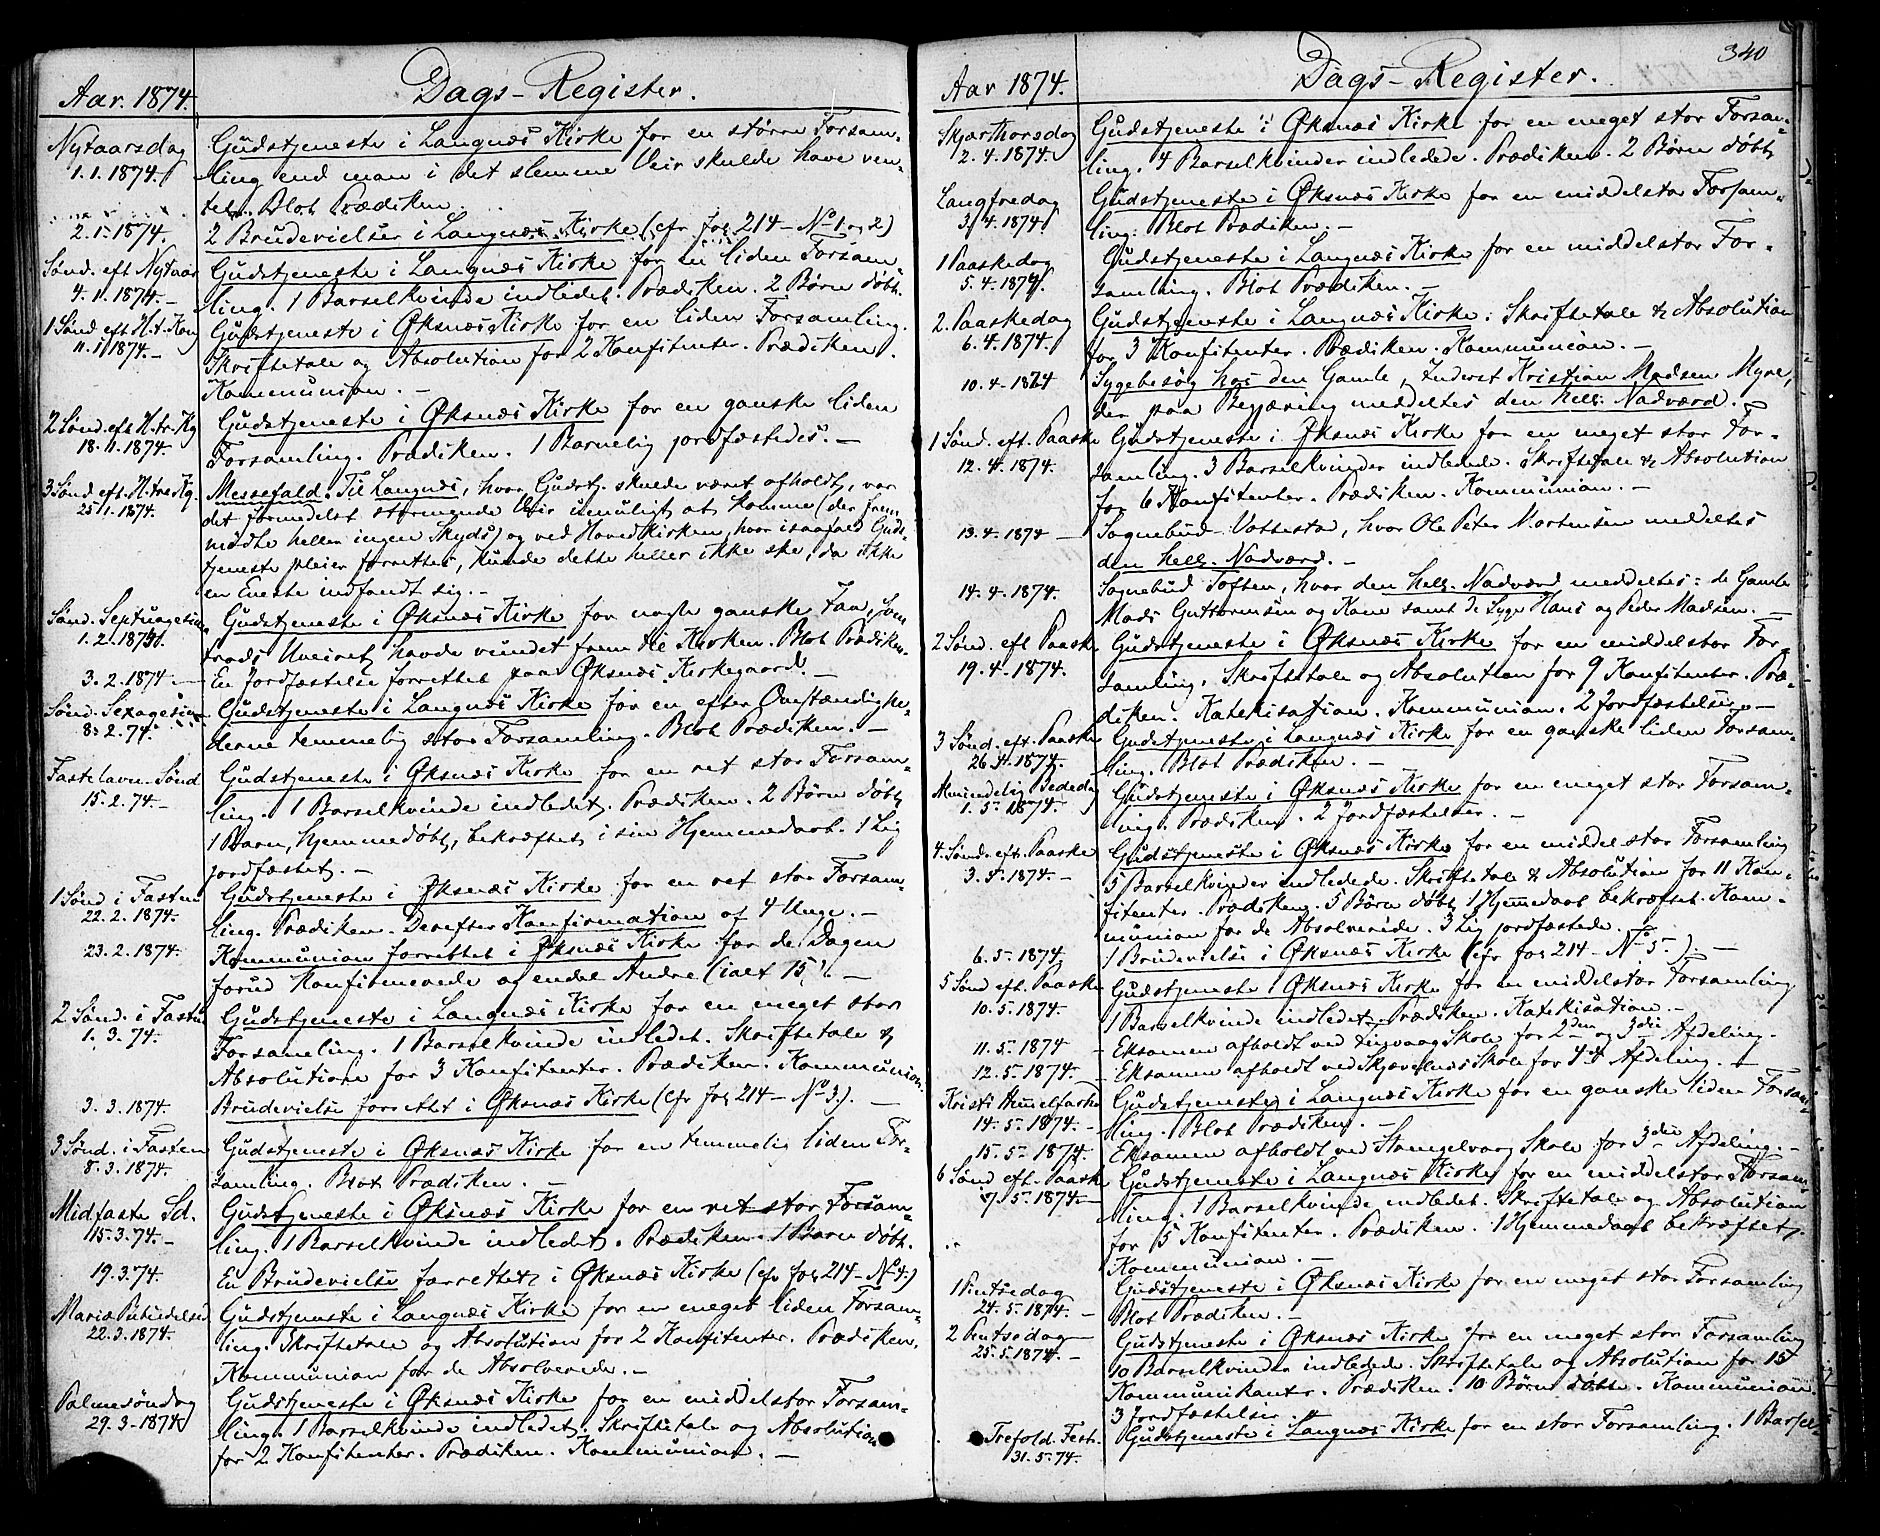 Aar. 1874.
Dags-Register.
Nytaarsdag
1.1.1874.
Gudstjeneste i Langnæs Kirke for en større Forsam-
ling end man i det slemme Veir skulde have ven-
tet. Blot Prædiken.
2.1.1874.
2 Brudevielser i Langenæs Kirke (cfr fol 214 - No 1 og 2)
Sønd. eft Nytaar
4.1.1874. -
Gudstjeneste i Langnæs Kirke for en liden Forsam
ling. 1 Barselkvinde indledet. Prædiken. 2 Børn døbt.
1 Sønd eft H. t. Kon
11.1.1874. -
Gudstjeneste i Øksnæs Kirke for en liden Forsamling.
Skriftetale og Absolution for 2 Konfitenter. Prædiken.
Kommunion. -
2 Sønd. eft H. tr. Kg
18.1.1874.
Gudstjeneste i Øksnæs Kirke for en ganske liden
Forsamling. Prædiken. 1 Barnelig jordfæstedes. -
3 Sønd eft. H. tre Kg.
25.1.1874.
Messefald. Til Langnæs, hvor Gudstj. skulde været afholdt, var
det formedelst stormende Veir umuligt at komme (der frem
mødte heller ingen Skyds) og ved Hovedkirken, hvor isaafald Guds-
tjeneste pleier forrettes, kunde dette heller ikke ske, da ikke
en Eneste indfandt sig. -
Sønd. Septuagesima
1.2.1874.
Gudstjeneste i Øksnæs Kirke for nogle ganske Faa, som
trods Uveiret havde vundet frem til Kirken. Blot Prædiken.
3.2.1874 -
En Jordfæstelse forrettet paa Øksnæs Kirkegaard. -
Sønd. Sexagesima
8.2.74.
Gudstjeneste i Langnæs Kirke for en efter Omstændighe-
derne temmelig stor Forsamling. Blot Prædiken. -
Fastelavn. Sønd
15.2.74. -
Gudstjeneste i Øksnæs Kirke for en ret stor Forsam-
ling. 1 Barselkvinde indledet. Prædiken. 2 Børn døbt
1 Barn, hjemmedøbt, bekræftet i sin Hjemmedaab. 1 Lig
jordfæstet. -
1 Sønd i Fasten
22.2.1874.
Gudstjeneste i Øksnæs Kirke for en ret stor Forsam-
ling. Prædiken. Derefter Konfirmation af 4 Unge. -
23.2.1874.
Kommunion forrettet i Øksnæs Kirke for de Dagen
forud Konfirmerede og endel Andre (ialt 15). -
2 Sønd. i Fasten
1.3.74.
Gudstjeneste i Langnæs Kirke for en meget stor
Forsamling. 1 Barselkvinde indledet. Skriftetale &
Absolution for 3 Konfitenter. Prædiken. Kommunion.
3.3.1874.
Brudevielse forrettet i Øksnæs Kirke (cfr fol 214 - No 3). -
3 Sønd. i Fasten
8.3.1874.
Gudstjeneste i Øksnæs Kirke for en temmelig liden For-
samling. Blot Prædiken. -
Midfaste Sd.
15.3.74. -
Gudstjeneste i Øksnæs Kirke for en ret stor Forsam-
ling. 1 Barselkvinde indledet. Prædiken. 1 Barn døbt.
19.3.74.
En Brudevielse forrettet i Øksnæs Kirke (cfr fol 214 - No 4.)
Mariæ Bebudelsesd
22.3.1874.
Gudstjeneste i Langnæs Kirke for en meget liden Forsam-
ling. Skriftetale og Absolution for 2 Konfitenter. Prædiken.
Kommunion for de Absolverede. -
Palmesøndag
29.3-1874
Gudstjeneste i Øksnæs Kirke for en middelstor Forsam-
ling. 1 Barselkvinde indledet. Skriftetale og Absolution
for 2 Konfitenter. Prædiken. Kommunion. -
340
Aar 1874.
Dags-Register.
Skjærthorsdag
2.4.1874.
Gudstjeneste i Øksnæs Kirke for en meget stor Forsam-
ling. 4 Barselkvinder indledede. Prædiken. 2 Børn døbt
Langfredag
3.4.1874
Gudstjeneste i Øksnæs Kirke for en middelstor Forsam-
ling. Blot Prædiken. -
1 Paaskedag
5.4.1874.
Gudstjeneste i Langnæs Kirke for en middelstor For-
samling. Blot Prædiken. -
2. Paaskedag
6.4.1874.
Gudstjeneste i Langnæs Kirke. Skriftetale & Absolution
for 3 Konfitenter. Prædiken. Kommunion. -
10.4-1874
Sygebesøg hos den Gamle, Inderst Kristian Madsen Myre,
der paa Begjæring meddeltes den hell. Nadværd.
1 Sønd. eft. Paaske
12.4.1874.
Gudstjeneste i Øksnæs Kirke for en meget stor For-
samling. 3 Barselkvinder indledede. Skriftetale & Absolution
for 6 Konfitenter. Prædiken. Kommunion. -
13.4.1874 -
Sognebud Vottestad, hvor Ole Peter Mortensen meddeltes
den hell. Nadværd. -
14.4.1874.
Sognebud Toften, hvor den hell. Nadværd meddeltes: de Gamle
Mads Guttormsen og Kone samt de Syge Hans og Peder Madsen. -
2 Sønd. eft Paaske
19.4.1874.
Gudstjeneste i Øksnæs Kirke for en middelstor For-
samling. Skriftetale og Absolution for 9 Konfitenter. Præ-
diken. Katekisation. Kommunion. 2 Jordfæstelser. -
3 Sønd. eft. Paaske
26.4.1874.
Gudstjeneste i Langnæs Kirke for en ganske liden Forsam-
ling. Blot Prædiken. -
Almindelig Bededag
1.5.1874.
Gudstjeneste i Øksnæs Kirke for en meget stor Forsam-
ling. Prædiken. 2 Jordfæstelser. -
4. Sønd. eft. Paaske
3.5.1874. -
Gudstjeneste i Øksnæs Kirke for en middelstor Forsamling
5 Barselkvinder indledede. Skriftetale & Absolution for 11 Kon-
fitenter. Prædiken. 5 Børn døbt 1 Hjemmedaab bekræftet. Kom-
munion for de Absolverede. 3 Lig jordfæstede.
6.5.1874.
1 Brudevielse i Øksnæs Kirke (cfr fol 214 - No 5). -
5 Sønd eft. Paaske
10.5.1874.
Gudstjeneste i Øksnæs Kirke for en middelstor Forsamling
1 Barselkvinde indledet. Prædiken. Katekisation. -
11.5.1874 -
Eksamen afholdt ved Skole for 2den og 3die Afdeling.
12.5.1874.
Eksamen afholdt ved Skole for Afdeling. -
Kristi Himmelfartsd
14.5.1874. -
Gudstjeneste i Langnæs Kirke for en ganske liden Forsam-
ling. Blot Prædiken. -
15.5.1874.
Eksamen afholdt ved Stengelvaag Skole for 3die Afdeling. -
6 Sønd eft. Paaske
17.5.1874 -
Gudstjeneste i Langnæs Kirke for en middelstor Forsam-
ling. 1 Barselkvinde indledet. Skriftetale og Absolution
for 5 Konfitenter. Prædiken. 1 Hjemmedaab bekræftet.
Kommunion. -
1 Pintsedag
24.5.1874. -
Gudstjeneste i Øksnæs Kirke for en meget stor Forsamling
Blot Prædiken. -
2 Pintsedag
25.5.1874. -
Gudstjeneste i Øksnæs Kirke for en meget stor Forsamling
10 Barselkvinder indledede. Skriftetale og Absolution for 15
Kommunikanter. Prædiken. 10 Børn døbte. Kommunion
3 Jordfæstelser. -
Trefold. Fest.
31.5.74.
Gudstjeneste i Langnæs Kirke for en stor Forsamling. 1 Barsel-